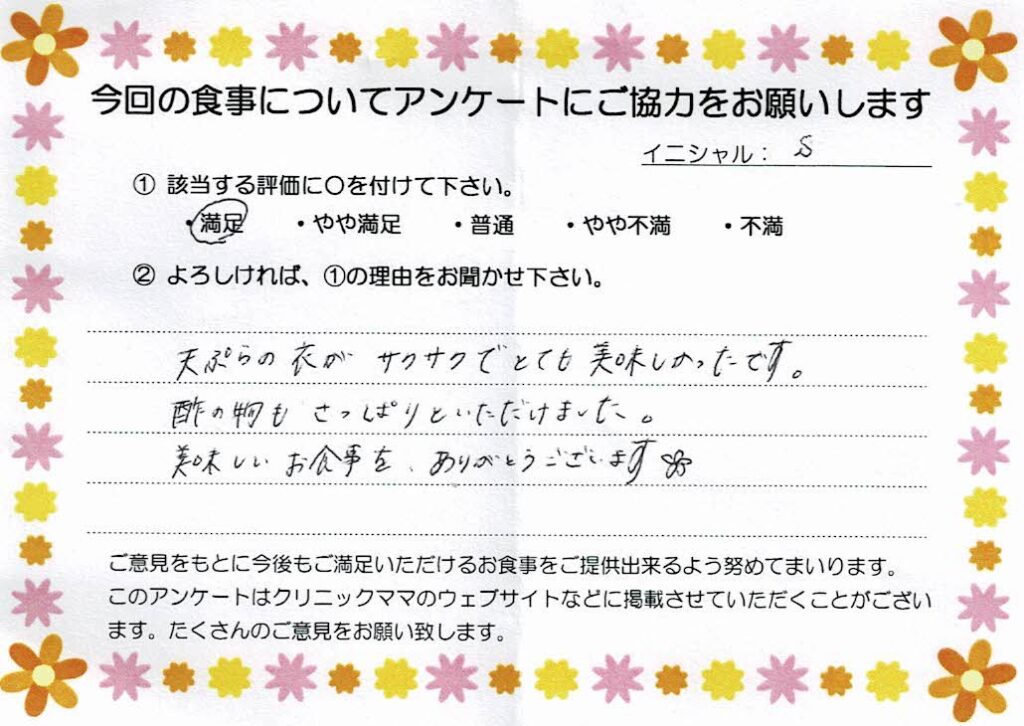 今回の食事についてアンケートにご協力をお願いします
イニシャル： S
① 該当する評価に〇を付けて下さい。
・満足 ・やや満足 ・普通 ・やや不満 ・不満
② よろしければ、①の理由をお聞かせ下さい。
天ぷらの衣が サクサクでとても美味しかったです。
酢の物も さっぱりといただけました。
美味しいお食事を、ありがとうございます
ご意見をもとに今後もご満足いただけるお食事をご提供出来るよう努めてまいります。
このアンケートはクリニックママのウェブサイトなどに掲載させていただくことがござい
ます。たくさんのご意見をお願い致します。